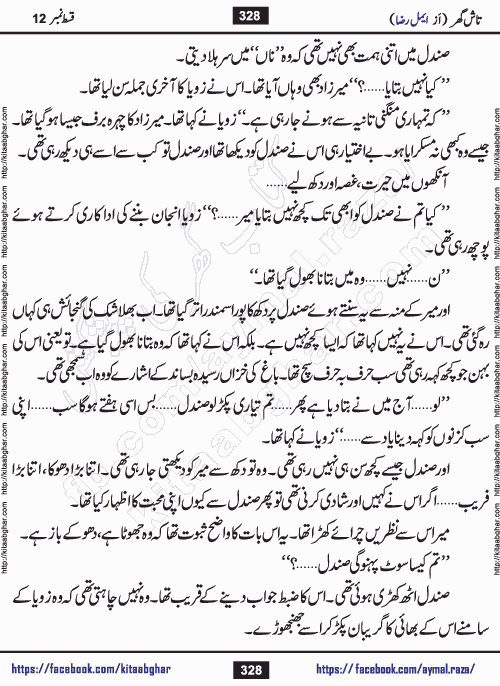 تاش گھر (از ایمل رضا) 328 قسط نمبر 12
صندل میں اتنی ہمت بھی نہیں تھی کہ وہ ”ناں“ میں سر ہلا دیتی۔
”کیا نہیں بتایا……؟“ میرزاد بھی وہاں آیا تھا۔ اس نے زویا کا آخری جملہ سن لیا تھا۔
”کہ تمہاری منگنی تانیہ سے ہونے جا رہی ہے۔“ زویا نے کہا تھا۔ میرزاد کا چہرہ برف جیسا ہو گیا تھا۔
جیسے وہ کبھی نہ مسکرایا ہو۔ بے اختیار ہی اس نے صندل کو دیکھا تھا اور صندل تو کب سے اسے ہی دیکھ رہی تھی۔
آنکھوں میں حیرت، غصہ اور دکھ لیے……
”کیا تم نے صندل کو ابھی تک کچھ نہیں بتایا میر……؟“ زویا انجان بننے کی اداکاری کرتے ہوئے
پوچھ رہی تھی۔
”ن……نہیں……وہ میں بتانا بھول گیا تھا۔“
اور میر کے منہ سے یہ سنتے ہوئے صندل پر دکھ کا پورا سمندر اتر گیا تھا۔ اب بھلا شک کی گنجائش ہی کہاں
رہ گئی تھی۔ اس نے یہ نہیں کہا تھا کہ ایسا کچھ نہیں ہے۔ بلکہ اس نے کہا تھا کہ وہ بتانا بھول گیا ہے۔ تو یعنی اس کی
بہن جو کچھ کہہ رہی تھی سب حرف بہ حرف سچ تھا۔ باغ کی خزاں رسیدہ بساند کے اشارے کو وہ اب سمجھی تھی۔
”لو……آج میں نے بتا دیا ہے پھر……تم تیاری پکڑ لو صندل……بس اسی ہفتے ہو گا سب……اپنی
سب کزنوں کو کہہ دینا یاد سے……“ زویا نے کہا تھا۔
اور صندل جیسے کچھ سن ہی نہیں رہی تھی۔ وہ تو دکھ سے میر کو دیکھتی جا رہی تھی۔ اتنا بڑا دھوکا، اتنا بڑا
فریب……اگر اس نے کہیں اور شادی کرنی تھی تو پھر صندل سے کیوں اپنی محبت کا اظہار کیا تھا۔
میر اس سے نظریں چرائے کھڑا تھا۔ یہ اس بات کا واضح ثبوت تھا کہ وہ جھوٹا ہے، دھوکے باز ہے۔
”تم کیسا سوٹ پہنو گی صندل……؟“
صندل اٹھ کھڑی ہوئی تھی۔ اس کا ضبط جواب دینے کے قریب تھا۔ وہ نہیں چاہتی تھی کہ وہ زویا کے
سامنے اس کے بھائی کا گریبان پکڑ کر اسے جھنجھوڑے۔
https://facebook.com/kitaabghar 328 https://facebook.com/aymal.raza/